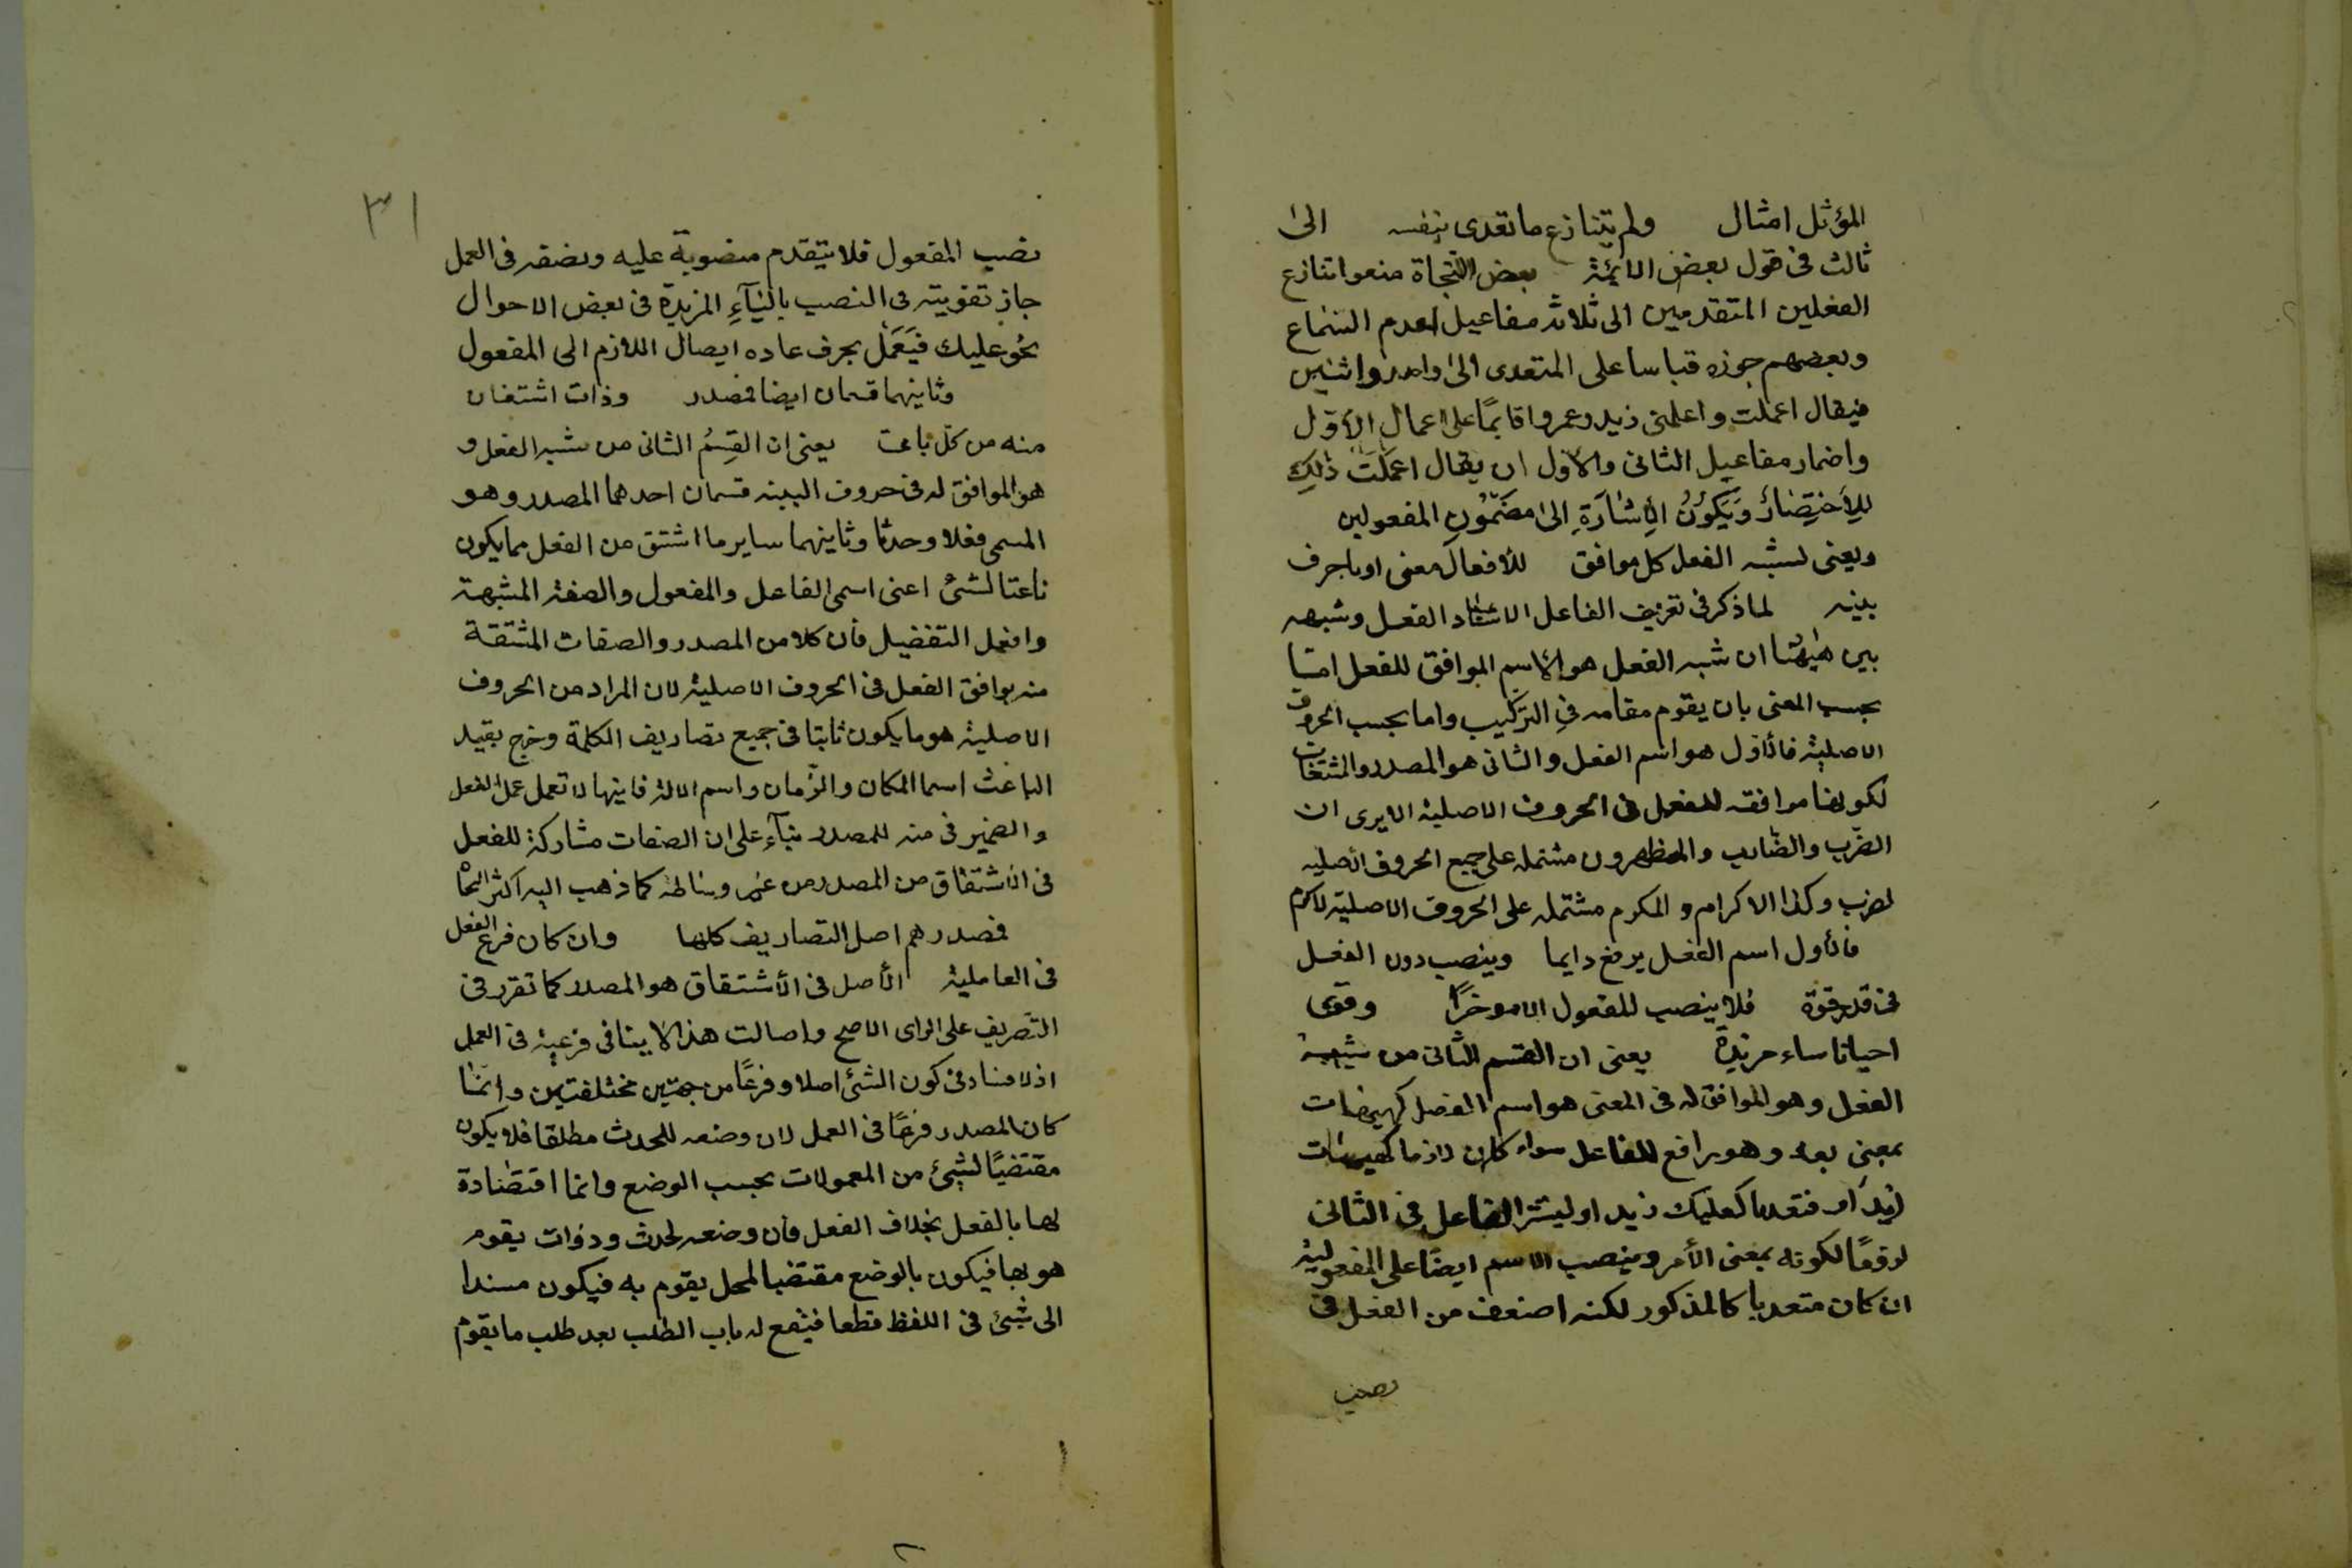 المؤثل امثال ولم يتنازع ما تعدى بنفسه الى
ثالث فى قول بعض الائمة بعض النحاة منعوا تنازع
الفعلين المتقدمين الى ثلاثة مفاعيل لعدم السماع
وبعضهم جوزه قياسا على المتعدى الى واحد واثنين
فيقال اعملت واعلمنى زيد وعمروا قايمًا على اعمال الأول
واضمار مفاعيل الثانى والاول ان يقال اعملت ذلك
للأختصار ويكون الأشارة الى مضمون المفعولين
ويعنى لشبه الفعل كل موافق للأفعال معنى او باحرف
بينه لما ذكر فى تعريف الفاعل الاسناد الفعل وشبهه
بين ههنا ان شبه الفعل هو الاسم الموافق للفعل امّا
بحسب المعنى بان يقوم مقامه فى التركيب واما بحسب الحروف
الاصلية فالأول هو اسم الفعل والثانى هو المصدر والمشتقات
لكونها موافقه للفعل فى الحروف الاصلية الا يرى ان
الضرب والضارب والمظهرون مشتمله على جميع الحروف الاصليه
لضرب وكذا الاكرام والمكرم مشتمله على الحروف الاصلية لاكرم
فالأول اسم الفعل يرفع دايما وينصب دون الفعل
فى قدر قوة فلا ينصب للمفعول الا موخرًا وقوى
احيانا بباء مزيدة يعنى ان القسم الثانى من شبه
الفعل وهو الموافق له فى المعنى هو اسم الفعل كهيهات
بمعنى بعد وهو رافع للفاعل سواء كان لازما كهيهات
زيد او متعديا كعليك زيد اوليستر الفاعل فى الثانى
لوقعًا لكونه بمعنى الأمر وينصب الاسم ايضًا على المفعولية
ان كان متعديا كالمذكور لكنه اضعف من الفعل فى
نصب
٣١
نصب المفعول فلا يتقدم منصوبة عليه وبضعفه فى العمل
جاز تقويته فى النصب بالباء المزيدة فى بعض الاحوال
نحو عليك فيَعمَل بحرف عاده ايصال اللازم الى المفعول
وثاينهما قسمان ايضا فمصدر وذات اشتقاق
منه من كل باعث يعنى ان القسمُ الثانى من شبه الفعل و
هو الموافق له فى حروف البينه قسمان احدهما المصدر وهو
المسمى فعلا وحدثا وثاينهما ساير ما اشتق من الفعل مما يكون
ناعتا لشئ اعنى اسمى الفاعل والمفعول والصفة المشبهة
وافعل التفضيل فان كلا من المصدر والصفات المشتقة
منه يوافق الفعل فى الحروف الاصلية لان المراد من الحروف
الاصلية هو ما يكون ثابتا فى جميع تصاريف الكلمة وخرج بقيد
الباعث اسما المكان والزمان واسم الالة فاينها لا تعمل عمل الفعل
والضمير فى منه للمصدر بناء على ان الصفات مشاركة للفعل
فى الاشتقاق من المصدر من غير وساطة كما ذهب اليه اكثر النحاة
فمصدرهم اصل التصاريف كلها وان كان فرع الفعل
فى العاملية الأصل فى الأشتقاق هو المصدر كما تقرر فى
التصريف على الراى الاصح واصالت هذا لا ينافى فرعية فى العمل
اذ لا فساد فى كون الشئ اصلا وفرعًا من جهتين مختلفتين وانما
كان المصدر فرعًا فى العمل لان وضعه للحدث مطلقا فلا يكون
مقتضيًا لشيئ من المعمولات بحسب الوضع وانما اقتضادة
لها بالفعل بخلاف الفعل فان وضعه لحدث وذوات يقوم
هو بها فيكون بالوضع مقتضيا لمحل يقوم به فيكون مسندا
الى شيئ فى اللفظ قطعا فيفتح له باب الطلب بعد طلب ما يقوم